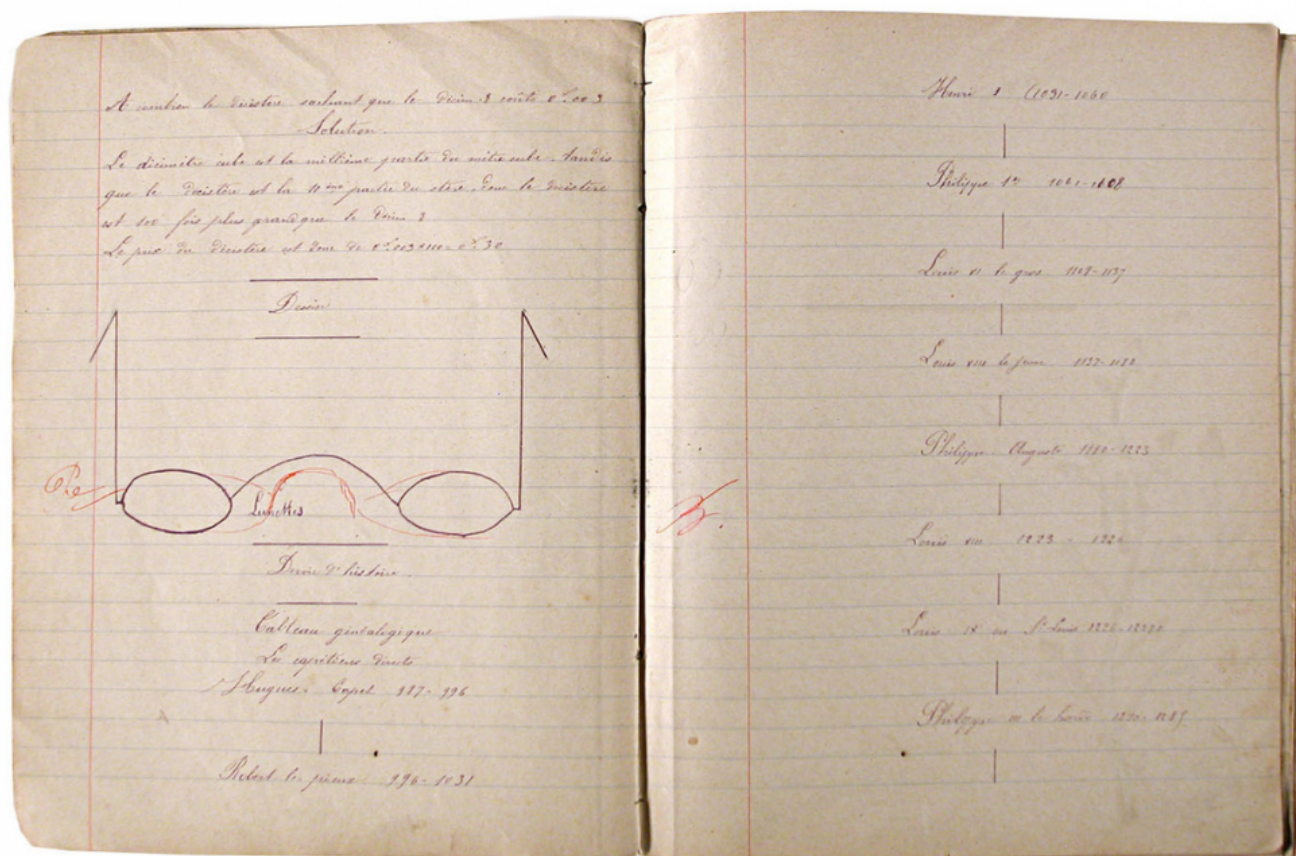 A combien le décistère sachant que le décim. 3 coûte 0f,003
Solution.
Le décimètre cube est la millième partie du mètre cube. tandis
que le décistère est la 10ème partie du stère. donc le décistère
est 100 fois plus grand que le décim 3
Le prix du décistère est donc de 0f,003×100=0f,30
Dessin
Lunettes
Devoir d'histoire.
Tableau généalogique
Les capétiens directs
Hugues. Capet 987-996
Robert le pieux 996-1031
Henri 1 (1031-1060
Philippe 1er 1061-1108
Louis VI le gros 1108-1137
Louis VII le jeune 1137-1180
Philippe Auguste 1180-1223
Louis VIII 1223-
Louis IX ou St Louis
Philippe III le hardi 1270-1285